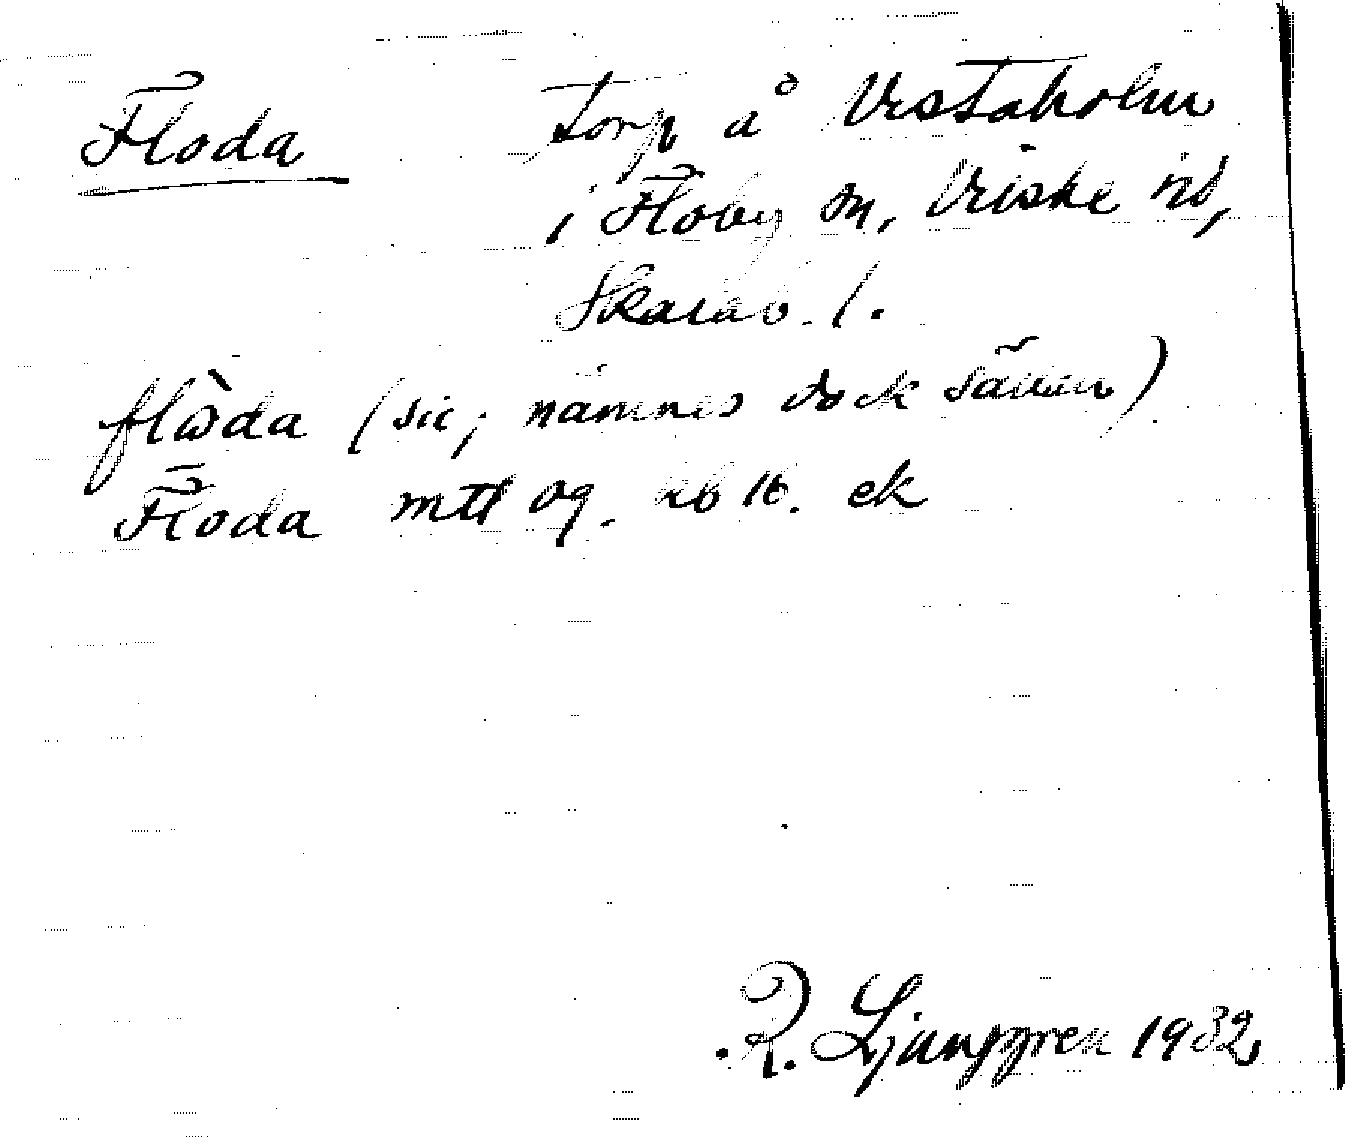 Floda torp å Vestaholm
i Floby sn, Vilske hd,
Skarab. l.
flòda (sic; nämnes dock sällan)
Floda mtl og. hb 16. ek
R. Ljunggren 1932